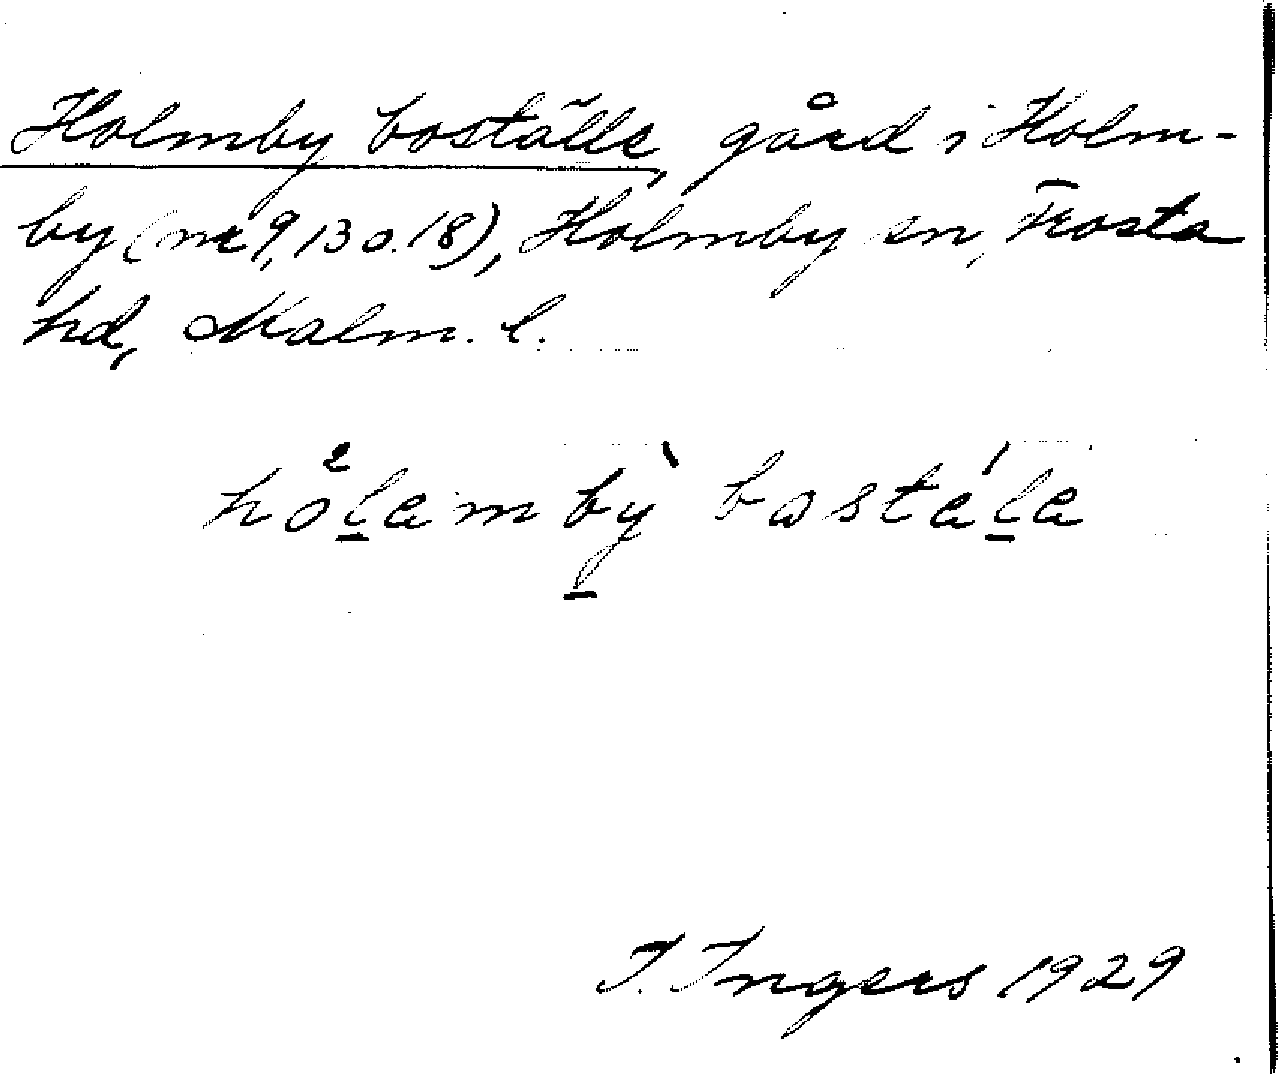 Holmby boställe, gård i Holm-
by (nr 9, 13 o. 18), Holmby sn, Frosta
hd, Malm. l.
hålambỳ bostála
I. Ingers 1929